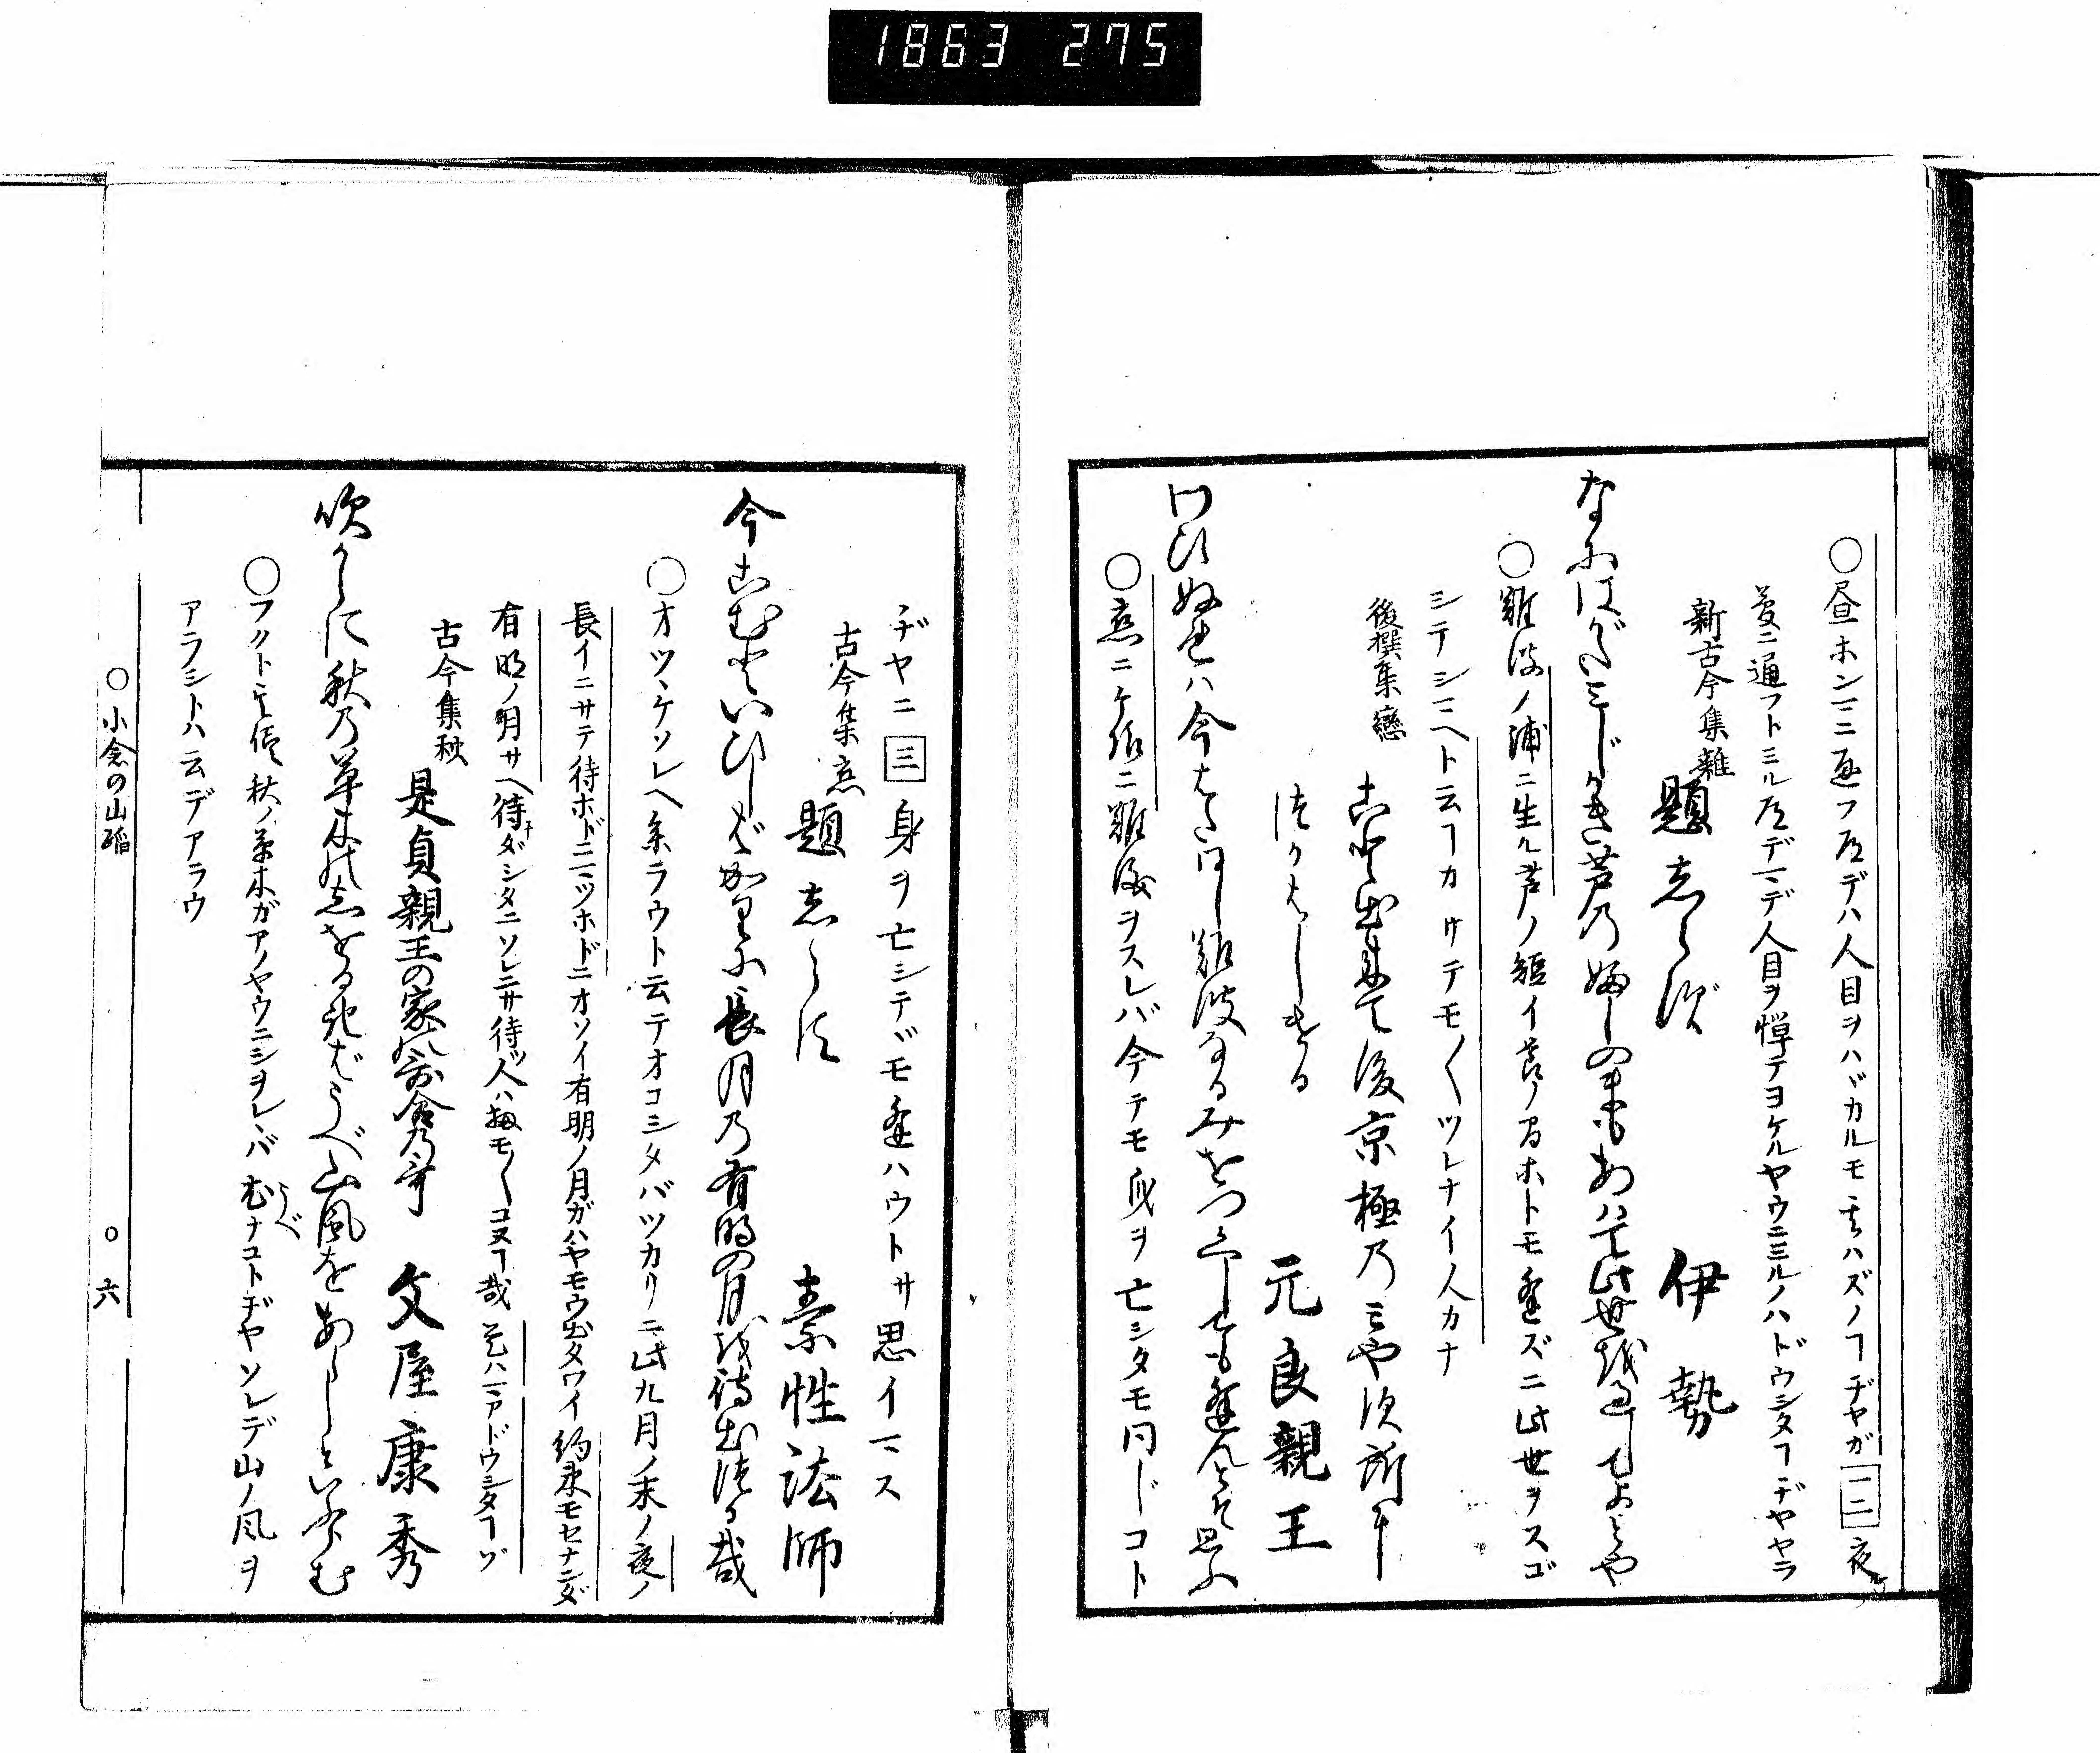 1863 275
○昼ホンニニ通フ道デハ人目ヲハヾカルモ其ハズノヿヂヤガ 一二 夜
夢ニ通フトミル道デマデ人目ヲ憚テヨケルヤウニミルノハドウシタヿヂヤヤラ
新古今集雑
題志らず
伊勢
なにはがたみじかき芦乃ふしのまもあはで此世を過してよとや
○難波ノ浦ニ生ル芦ノ短イ節ノ間ホトモ逢ズニ此世ヲスゴ
シテシマヘト云ヿカサテモ〱ツレナイ人カナ
後撰集戀
こと出来て後京極乃みやす所に
つかはしける
元良親王
わびぬれハ今はたおなし難波なるみをつくしても逢んとそ思ふ
○恋ニケ様ニ難儀ヲスレバ今テモ身ヲ亡シタモ同ジコト
ヂヤニ 三 身ヲ亡シテヾモ逢ハウトサ思イマス
古今集恋
題志らず
素性法師
今こむといひしばかりに長月乃有明の月を待出つる哉
○オツヽケソレヘ参ラウト云テオコシタバツカリニ此九月ノ末ノ夜ノ
長イニサテ待ホドニマツホドニオソイ有明ノ月ガハヤモウ出タワイ約束モセナンダ
有明ノ月サヘ待ダシタニソレニサ待ツ人ハ扨モ〱コヌヿ哉 是ハマアドウシタヿゾ
古今集秋
是貞親王の家の哥合乃哥
文屋康秀
吹からに秋乃草木のしをるればうべ山風をあらしといふらむ
○フクト其儘秋ノ草木ガアノヤウニシヲレヽバむべナコトヂヤソレデ山ノ風ヲ
アラシトハ云デアラウ
○小倉の山踏
○六